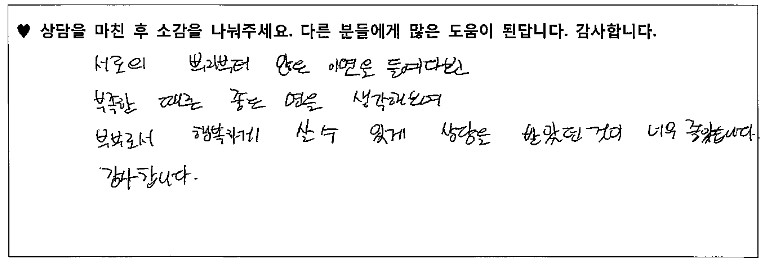 ♥ 상담을 마친 후 소감을 나눠주세요. 다른 분들에게 많은 도움이 된답니다. 감사합니다.
서로의 뿌리부터 않은 이면을 들여다보
부족한 때론 좋은 면을 생각해보며
부부로서 행복하게 살 수 있게 상담을 받았던 것이 너무 좋았습니다.
감사합니다.